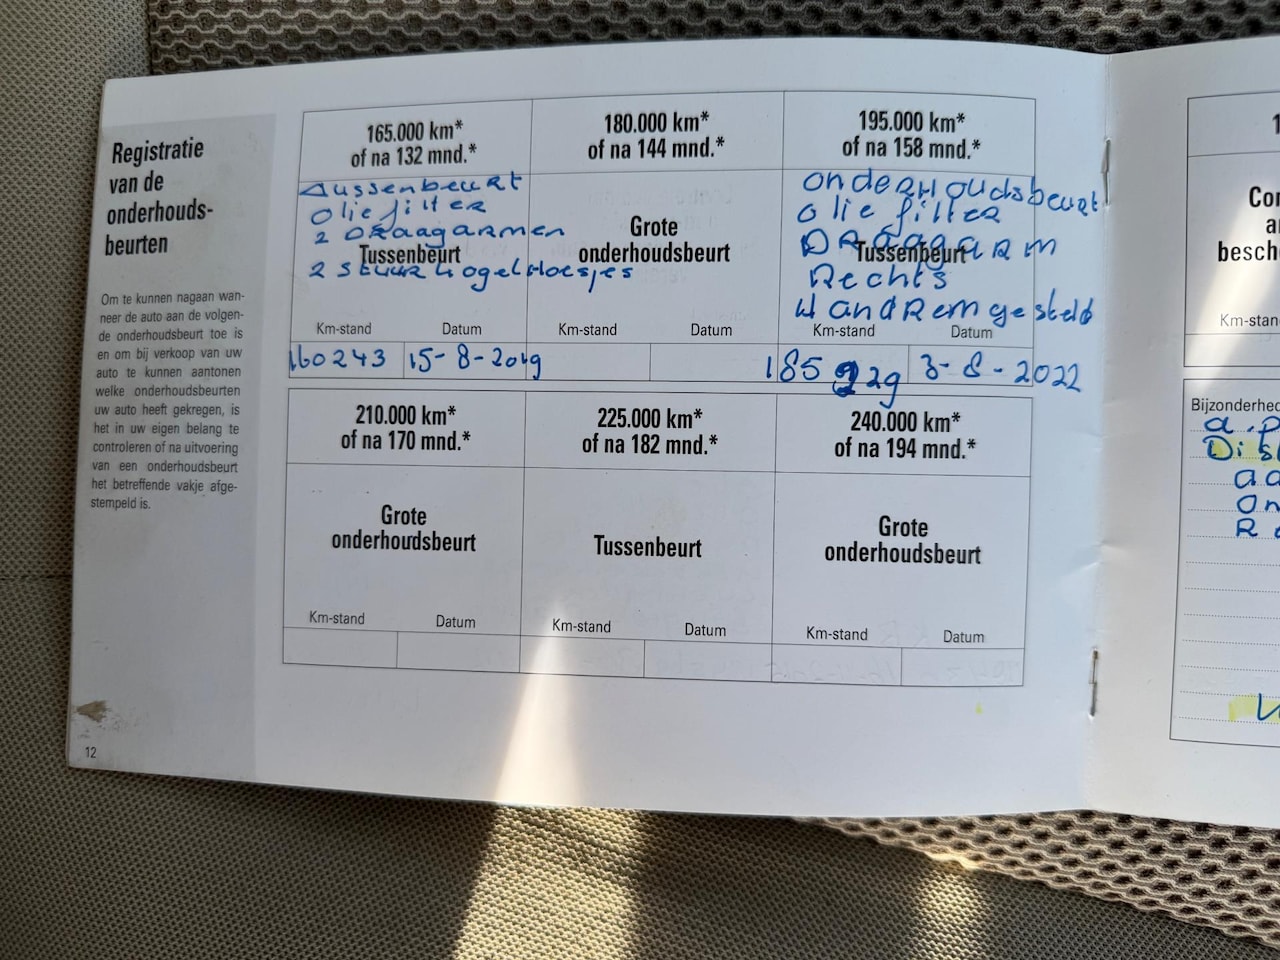 Registratie
van de
onderhouds-
beurten
Om te kunnen nagaan wan-
neer de auto aan de volgen-
de onderhoudsbeurt toe is
en om bij verkoop van uw
auto te kunnen aantonen
welke onderhoudsbeurten
uw auto heeft gekregen, is
het in uw eigen belang te
controleren of na uitvoering
van een onderhoudsbeurt
het betreffende vakje afge-
stempeld is.
12
165.000 km*
of na 132 mnd.*
Tussenbeurt
Olie filter
2 Draagarmen
Tussenbeurt
2 stuurkogelhoesjes
Km-stand Datum
160243 15-8-2019
180.000 km*
of na 144 mnd.*
Grote
onderhoudsbeurt
Km-stand Datum
195.000 km*
of na 158 mnd.*
onderhoudsbeurt
olie filter
DRaagarm
Tussenbeurt
Rechts
HandRem gesteld
Km-stand Datum
185 229 3-8-2022
210.000 km*
of na 170 mnd.*
Grote
onderhoudsbeurt
Km-stand Datum
225.000 km*
of na 182 mnd.*
Tussenbeurt
Km-stand Datum
240.000 km*
of na 194 mnd.*
Grote
onderhoudsbeurt
Km-stand Datum
1
Co
a
besch
Km-sta
Bijzonderhed
a.p
Dis
aa
on
R